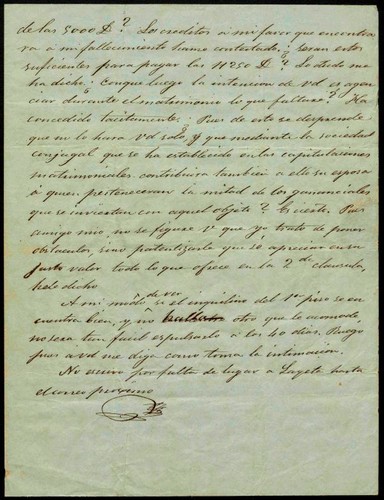 de las 5000 $? Los creditos á mi favor que encontra
rá á mi fallecimiento hame contestado; seran estos
suficientes para pagar las 11250 $? Lo dudo me
ha dicho; Conque luego la intencion de Vd es agen
ciar durante el matrimonio lo que faltare? Ha
concedido tacitamente; Pues de esto se desprende
que no lo hara Vd solo, y que mediante la sociedad
conyugal que se ha establecido en las capitulaciones
matrimoniales contribuira tambien á ello su esposa
á quien perteneceran la mitad de los gananciales
que se inviertan con aquel objeto? Es cierto. Pues
amigo mio, no se figure Vd que yo trato de poner
obstaculos, sino patentizarle que se apreciar en su
justo valor todo lo que ofrece en la 2da clausula,
hele dicho
A mi modo de ver si el inquilino del 1er piso se en
cuentra bien, y no otro que le acomode,
no sera tan facil espulsarlo á los 40 dias. Ruego
pues á Vd me diga como toma la intimacion.
No escribo por falta de lugar á Layete hasta
el correo proximo